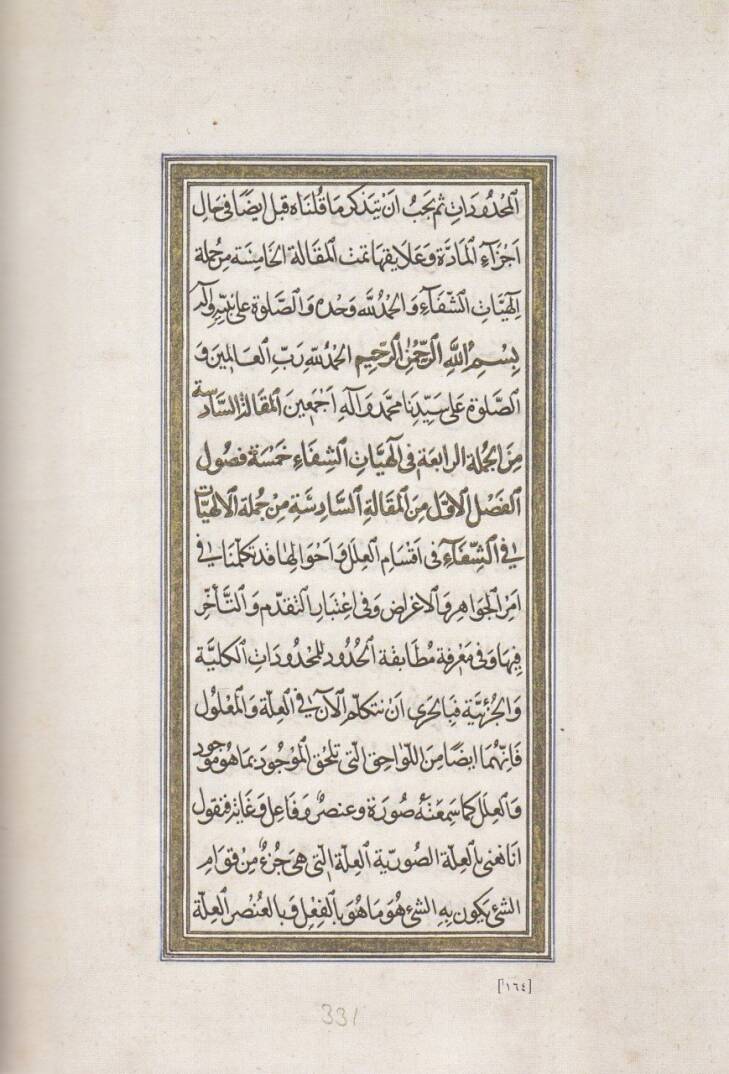 المحدودات ثم يجب ان يتذكر ما قلناه قبل ايضا فى حال
اجزاء المادة و علايقها تمت المقالة الخامسة من جملة
الهيات الشفاء و الحمد لله وحده و الصلوة على نبيه و اله
بسم الله الرحمن الرحيم الحمد لله رب العالمين و
الصلوة على سيدنا محمد و اله اجمعين المقالة السادسة
من الجملة الرابعة فى الهيات الشفاء خمسة فصول
الفصل الاول من المقالة السادسة من جملة الالهيات
فى الشفاء فى اقسام العلل و احوالها قد تكلمنا فى
امر الجواهر و الاعراض و فى اعتبار التقدم و التأخر
فيها و فى معرفة مطابقة الحدود للمحدودات الكلية
و الجزئية فبالحرى ان نتكلم الآن فى العلة و المعلول
فانهما ايضا من اللواحق التى تلحق الموجود بما هو موجود
و العلل كما سمعته صورة و عنصر و فاعل و غاية فنقول
انا نعنى بالعلة الصورية العلة التى هى جزء من قوام
الشئ يكون به الشئ هو ما هو بالفعل و بالعنصر العلة
[١٦٤]
331